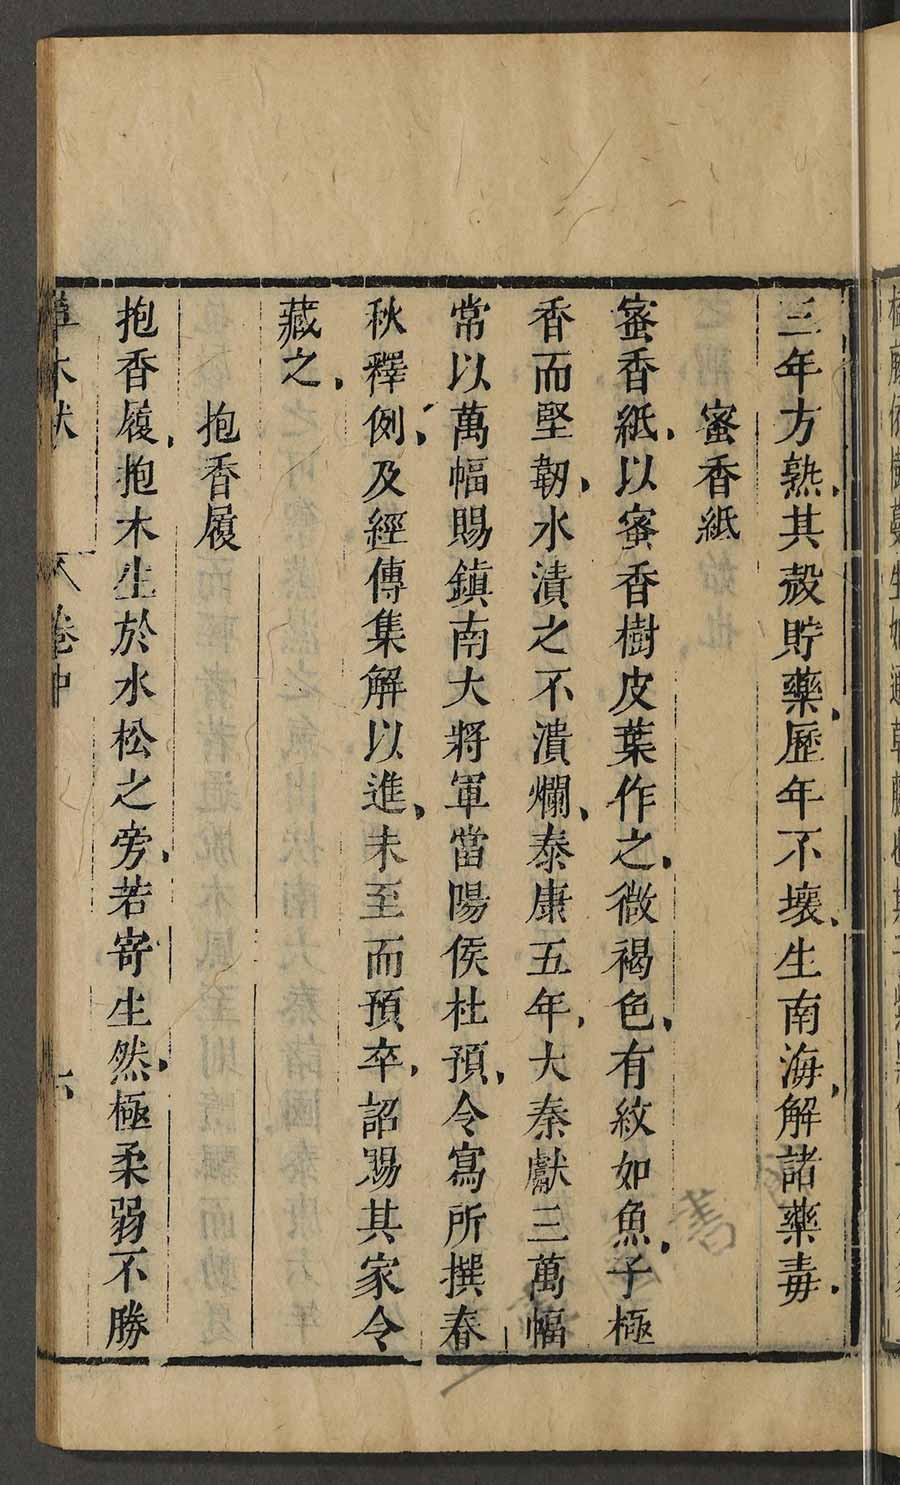 三年方熟、其殼貯藥、歷年不壞、生南海、解諸藥毒、
蜜香紙
蜜香紙、以蜜香樹皮葉作之、微褐色、有紋如魚、子極
香而堅韌、水漬之不潰爛、泰康五年、大秦獻三萬幅
常以萬幅賜鎮南大將軍當陽侯杜預、令寫所撰春
秋釋例、及經傳集解以進、未至而預卒、詔賜其家令
藏之、
抱香履
抱香履、抱木生於水松之旁、若寄生然、極柔弱不勝
草木狀 卷中 六